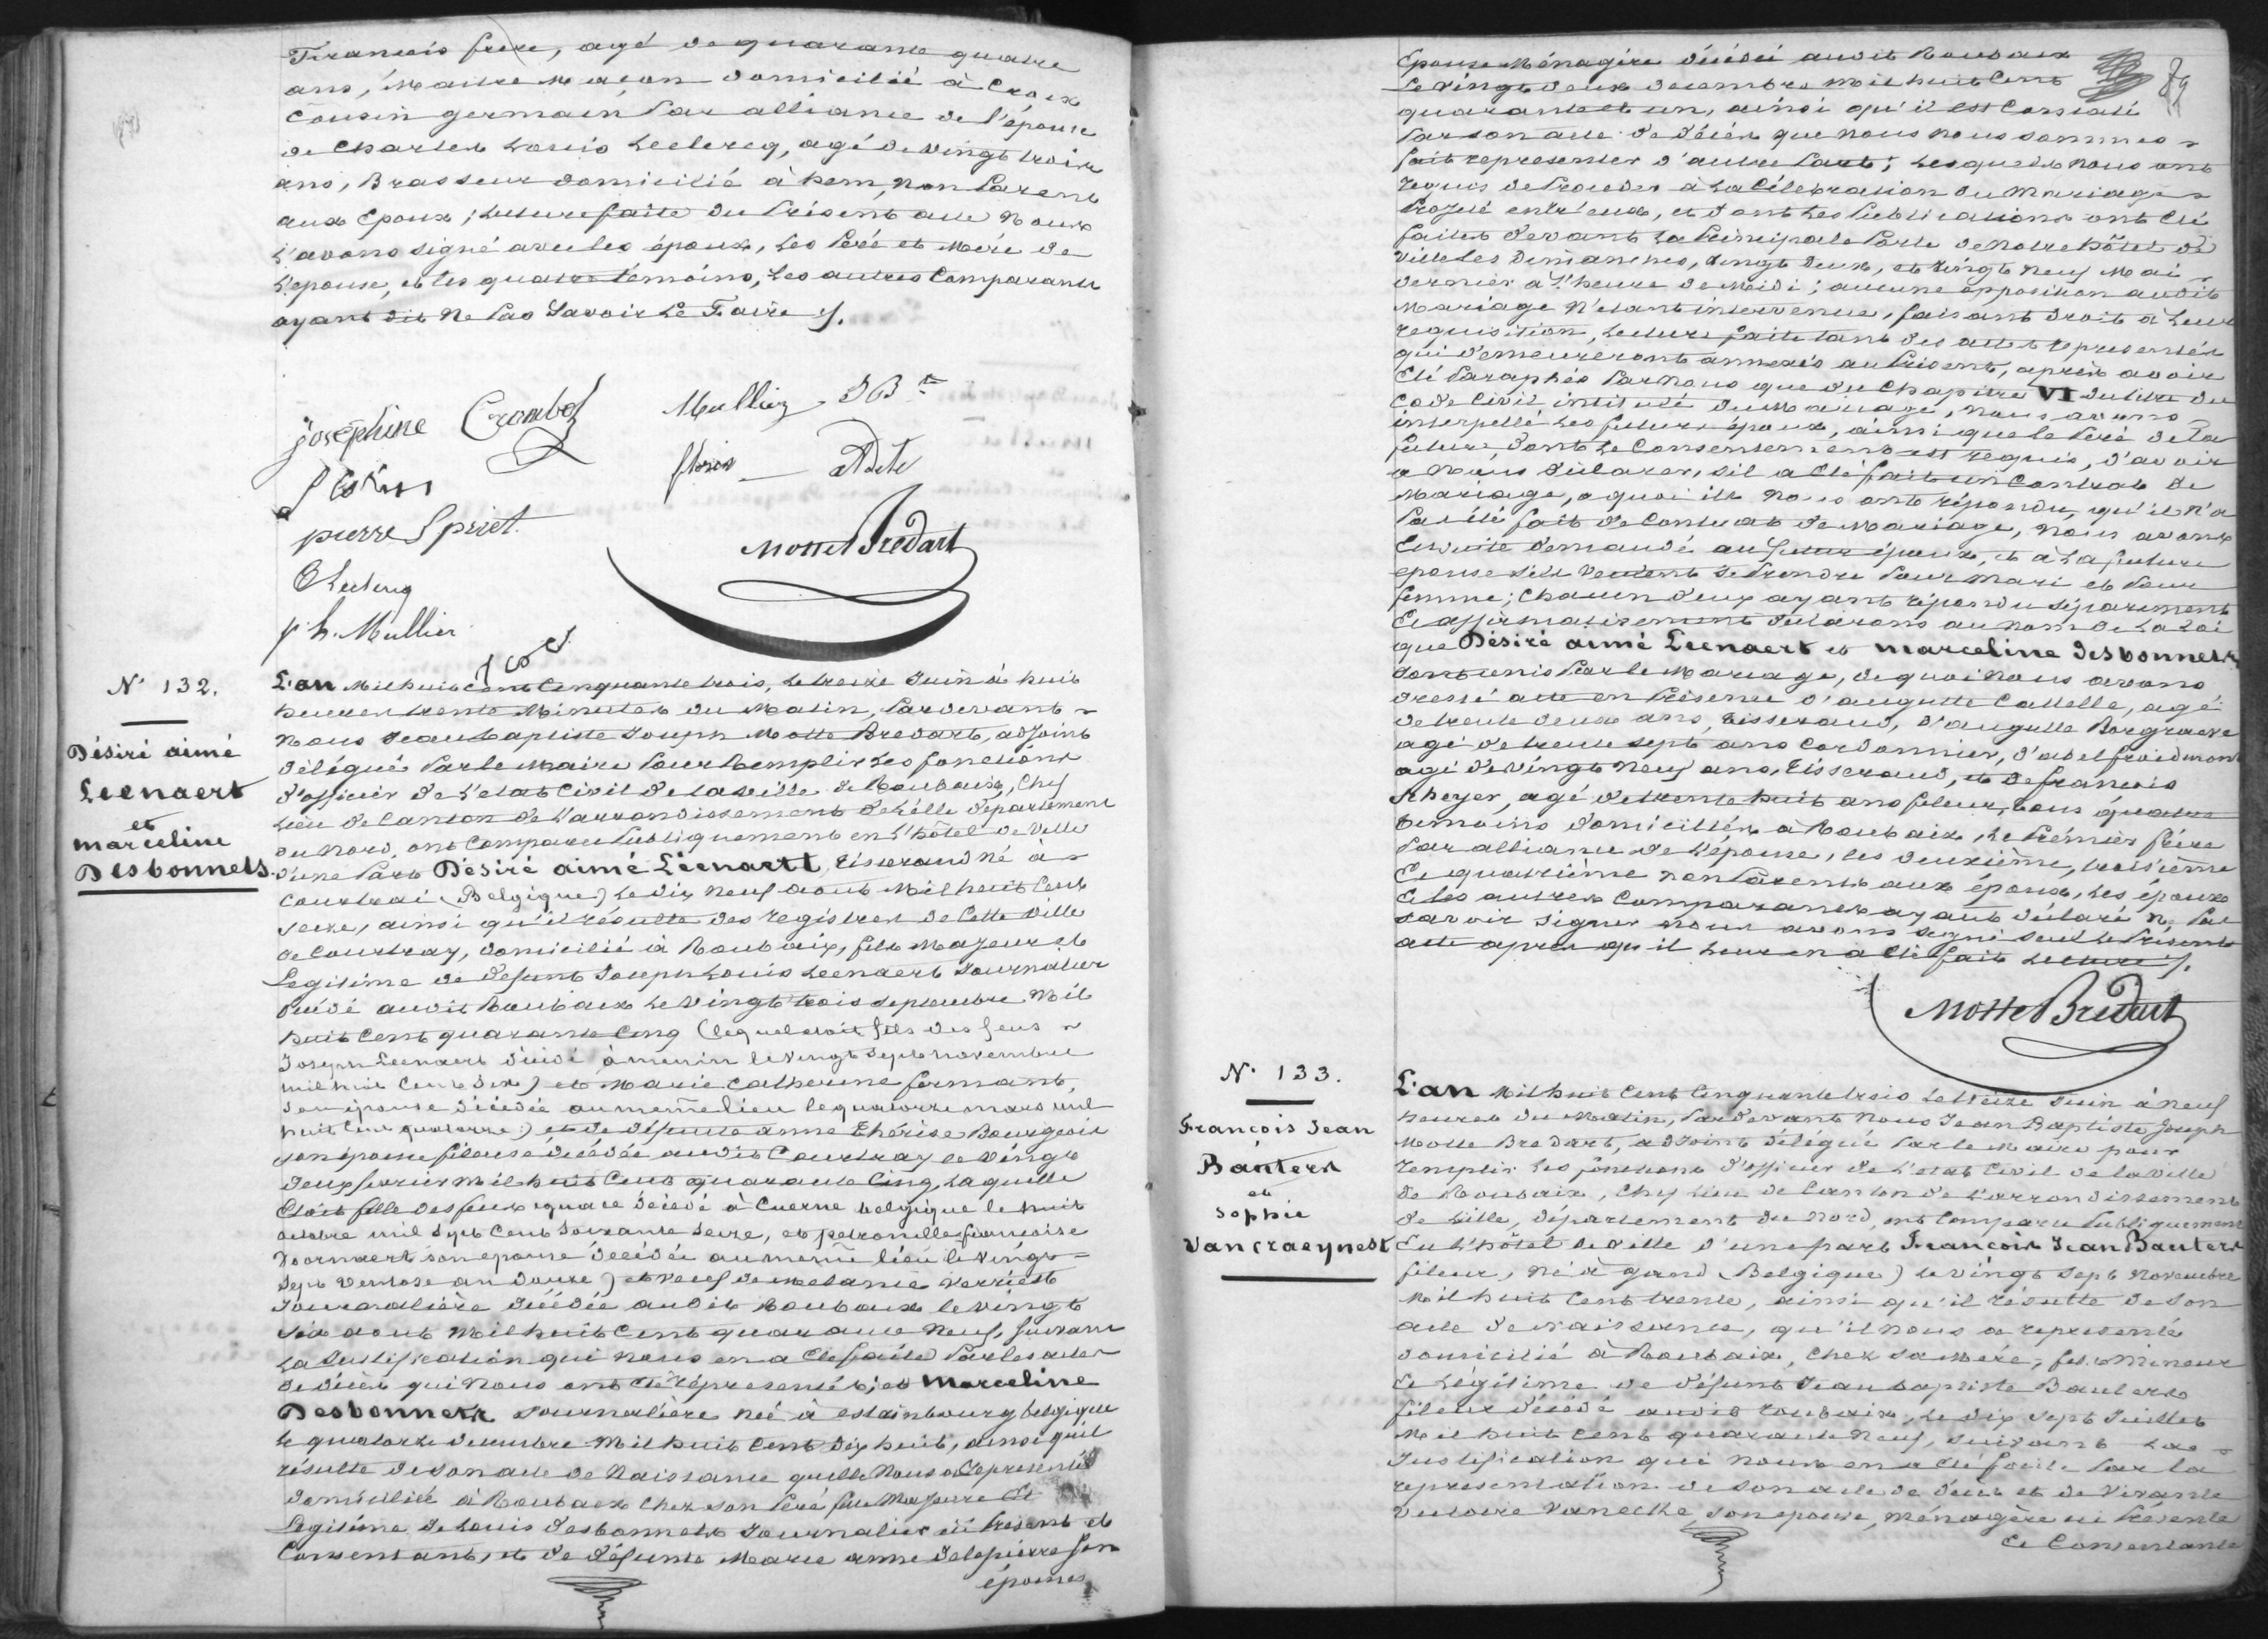 François frere, agé de quarante quatre
ans, Maitre Maçon domicilié à Croix
Cousin germain Par alliance de l'épouse
de Charles Louis Leclercq, agé de vingt trois
ans, Brasseur domicilié à hem, non Parent
aux Epoux; Lecture faite du Présent acte Nous
L'avons signé avec les époux, les Pere et Mere de
L'epouse, et les quatre temoins, les autres Comparants
ayant dit Ne Pas Savoir Le Faire.
Josephine Crombez
Mullier JBte
floris
pierre Spriet
Motte Bredart
CLeclercq
ph. Mullier
N° 132.
Désiré aimé
Leenaert
et
marceline
Desbonnets.
L'an Mil huit cent Cinquante trois, le treize Juin à huit
heures trente Minutes du Matin, Pardevant
Nous Jean Baptiste Joseph Motte Bredart, adjoint
délégué Par le Maire Pour Remplir Les fonctions
d'officier de L'etat Civil de la ville de Roubaix, Chef
Lieu de Canton de L'arrondissement de Lille département
du Nord, ont Comparu Publiquement en L'hôtel de Ville
d'une Part Désiré aimé Léenaert, Tisserand né à
Courtrai (Belgique) Le dix neuf aout Mil huit Cent
seize, ainsi qu'il résulte des registres de Cette Ville
de Courtray, domicilié à Roubaix, fils Majeur et
Legitime de defunt Joseph Louis Leenaert Journalier
décédé audit Roubaix Le Vingt trois septembre Mil
huit Cent quarante Cinq (lequel etoit fils des feus
Joseph Leenaert décédé à menin le vingt sept novembre
mil huit Cent dix) et Marie Catherine formant,
son épouse décédée au meme lieu le quatorze mars mil
huit Cent quatorze) et de défunte anne Thérèse Bourgeois
son épouse fileuse décédée audit Courtray le Vingt
deux fevrier Mil huit Cent quarante Cinq, Laquelle
Etoit fille des feus ignace décédé à Cuerne belgique le huit
octobre mil sept Cent soixante seize, et petronille françoise
Voornaert son epouse décédée au meme lieu le Vingt
sept Ventose an douze) et Veuf de melanie Verriest
Journalière décédée audit Roubaix le Vingt
six aout Mil huit Cent quarante Neuf, suivant
La Justification qui Nous en a Eté faite Par les actes
de décès qui Nous ont eté représentés; et Marceline
Desbonnets Journalière née à estainbourg belgique
Le quatorze decembre Mil huit Cent dix huit, ainsi qu'il
résulte de son acte de Naissance qu'elle Nous a représenté
domiciliée à Roubaix Chez son Pere fille Majeure Et
Legitime de Louis desbonnets Journalier ici Present et
Consentant, et de défunte Marie anne delepierre son
épouse
89
Epouse Ménagère décédée audit Roubaix
Le Vingt deux decembre Mil huit Cent
quarante et un, ainsi qu'il est Constaté
Par son acte de décès que Nous Nous sommes
fait representer d'autre Part; Lesquels Nous ont
requis de Proceder à La Célébration du Mariage
Projeté entr'eux, et dont Les Publications ont Eté
faites devant La Principale Porte de Notre hôtel de
Ville Les Dimanches, Vingt deux, et Vingt Neuf Mai
dernier à L'heure de Midi; aucune opposition audit
Mariage N'etant intervenue, faisant droit à Leur
requisition, Lecture faite tant des actes representés
qui demeureront annexés au Présent, après avoir
Eté Paraphés Par Nous que du Chapitre VI du titre du
Code Civil intitulé du Mariage, Nous avons
interpellé Les futurs époux, ainsi que le Pere de La
future, dont Le Consentement est requis, d'avoir
a Nous déclarer, s'il a Eté fait un Contrat de
Mariage, a quoi ils Nous ont répondu, qu'il N'a
Pas été fait de Contrat de Mariage, Nous avons
Ensuite demandé au futur époux, et à La future
epouse s'ils Veulent se Prendre Pour Mari et Pour
femme; Chacun d'eux ayant répondu séparement
Et affirmativement déclarons au Nom de La Loi
que Désiré aimé Leenaert et marceline desbonnets
sont unis Par le Mariage, de quoi Nous avons
dressé acte en Présence d'auguste Cattelle, agé
de trente deux ans, Tisserand, d'auguste Borgraeve
agé de trente sept ans Cordonnier, d'abel froidmont
agé de Vingt Neuf ans, Tisserand, et de françois
Scheyer, agé de trente huit ans fileur, tous quatre
temoins domiciliés à Roubaix, Le Prémier frère
Par alliance de L'épouse, les deuxième, troisième
Et quatrième non Parents aux époux, Les époux
Et les autres Comparants ayant déclaré Ne Pas
savoir signer Nous avons signé seul le Présent
acte après qu'il Leur en a Eté fait Lecture.
Motte Bredart
N° 133.
François Jean
Bauters
et
Sophie
Van craeynest
L'an Mil huit Cent Cinquante trois Le treize Juin à Neuf
heures du Matin, Pardevant Nous Jean Baptiste Joseph
Motte Bredart, adjoint délégué Par le Maire pour
remplir Les fonctions d'officier de L'etat Civil de la Ville
de Roubaix, Chef Lieu de Canton de L'arrondissement
de Lille, département du Nord, ont Comparu Publiquement
En L'hôtel de Ville d'une part François Jean Bauters
fileur, Né à gand (Belgique) Le Vingt Sept Novembre
Mil huit Cent trente, ainsi qu'il résulte de son
acte de naissance, qu'il Nous a representé
domicilié à Roubaix, Chez sa Mère, fils Mineur
Et Légitime de défunt Jean baptiste Bauters
fileur décédé audit roubaix, Le dix sept Juillet
Mil huit Cent quarante Neuf, suivant La
Justification qui Nous en a Eté faite Par la
représentation de son acte de décès et de Vivante
Victoire Vanecke, son epouse, ménagère ici Présente
Et Consentante